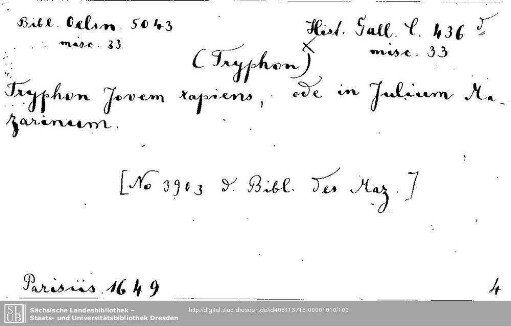 Bibl. Oelsn. 5043
misc. 33
Hist. Gall. C. 436 d
misc. 33
(Tryphon)
Tryphon Jovem rapiens, ode in Julium Ma-
zarinum.
[No 3903 d. Bibl. des Maz.]
Parisiis 1649
4
SLUB
Sächsische Landesbibliothek –
Staats- und Universitätsbibliothek Dresden